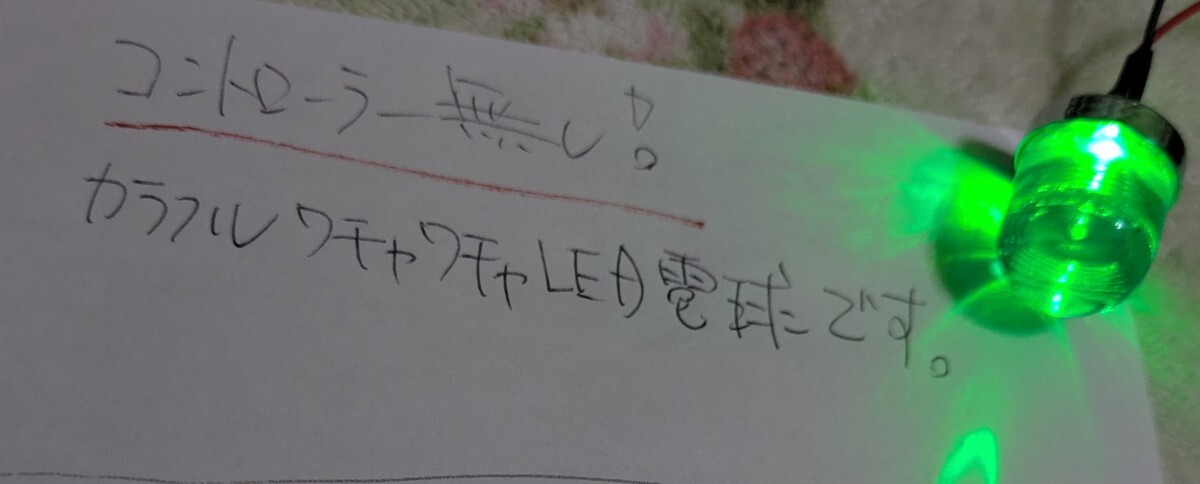 コントローラー無し!
カラフルワチャワチャLED電球です。